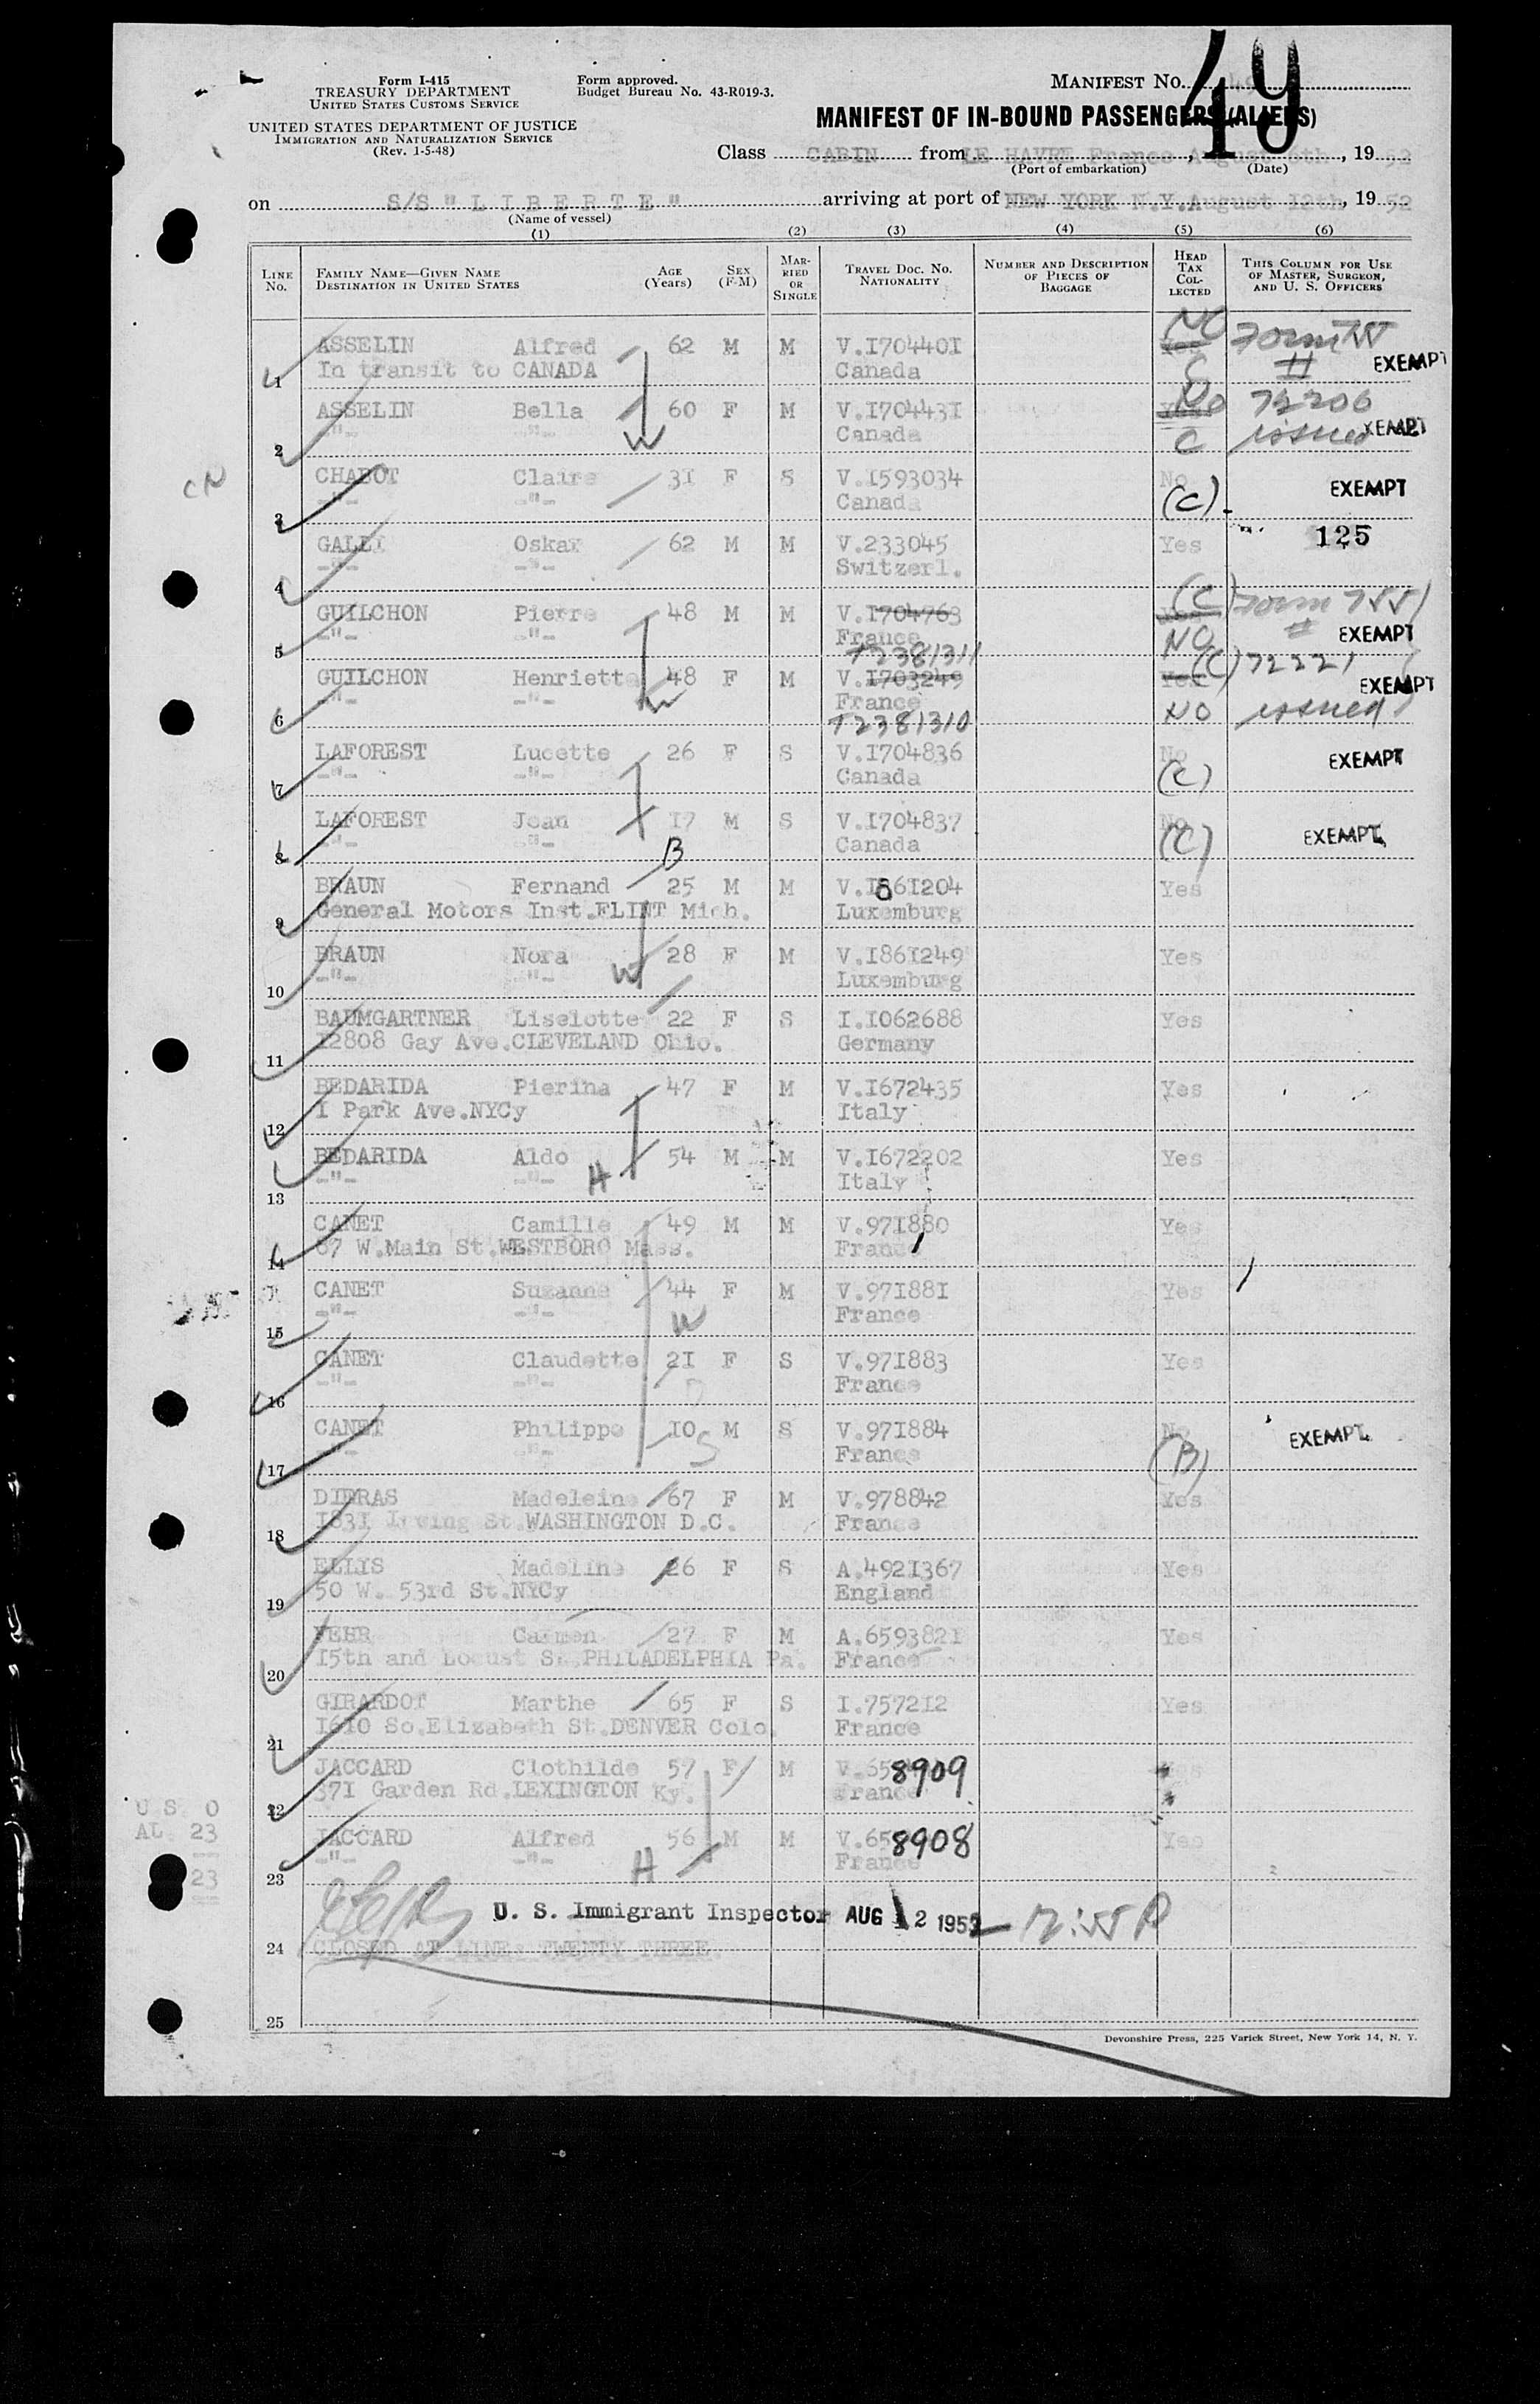 Form I-415
TREASURY DEPARTMENT
UNITED STATES CUSTOMS SERVICE
UNITED STATES DEPARTMENT OF JUSTICE
IMMIGRATION AND NATURALIZATION SERVICE
(Rev. 1-5-48)
Form approved.
Budget Bureau No. 43-R019-3.
MANIFEST No. 49
MANIFEST OF IN-BOUND PASSENGERS (ALIENS)
Class CABIN from LE HAVRE France, August 6th, 19 52
(Port of embarkation) (Date)
on S/S "LIBERTE" arriving at port of NEW YORK N.Y. August 12th, 19 52
(Name of vessel)
(1) (2) (3) (4) (5) (6)
LINE No. FAMILY NAME—GIVEN NAME DESTINATION IN UNITED STATES AGE (Years) SEX (F-M) MARRIED OR SINGLE TRAVEL DOC. NO. NATIONALITY NUMBER AND DESCRIPTION OF PIECES OF BAGGAGE HEAD TAX COLLECTED THIS COLUMN FOR USE OF MASTER, SURGEON, AND U. S. OFFICERS
ASSELIN Alfred 62 M M V.I70440I Yes NO Form 755
1 In transit to CANADA Canada C # EXEMPT
ASSELIN Bella 60 F M V.I70443I Yes No 72206
2 -"- -"- W Canada C issued EXEMPT
CN CHABOT Claire 3I F S V.I593034 No
3 -"- -"- Canada (C) EXEMPT
GALLI Oskar 62 M M V.233045 Yes 125
4 -"- -"- Switzerl.
GUILCHON Pierre 48 M M V.I704763 Yes (C) Form 755
5 -"- -"- France NO # EXEMPT
T2381311
GUILCHON Henriette 48 F M V.I703249 Yes (C) 72221
6 -"- -"- W France NO issued EXEMPT
T2381310
LAFOREST Lucette 26 F S V.I704836 No EXEMPT
7 -"- -"- Canada (C)
LAFOREST Jean I7 M S V.I704837 No
8 -"- -"- B Canada (C) EXEMPT
BRAUN Fernand 25 M M V.I86I204 Yes
9 General Motors Inst.FLINT Mich. Luxemburg
BRAUN Nora 28 F M V.I86I249 Yes
10 -"- -"- W Luxemburg
BAUMGARTNER Liselotte 22 F S I.I062688 Yes
11 I2808 Gay Ave.CLEVELAND Ohio. Germany
BEDARIDA Pierina 47 F M V.I672435 Yes
12 I Park Ave.NYCy Italy
BEDARIDA Aldo 54 M M V.I672202 Yes
13 -"- -"- H Italy
CANET Camille 49 M M V.97I880 Yes
14 67 W.Main St.WESTBORO Mass. France
CANET Suzanne 44 F M V.97I88I Yes
15 -"- -"- W France
CANET Claudette 2I F S V.97I883 Yes
16 -"- -"- D France
CANET Philippe IO M S V.97I884 No EXEMPT
17 -"- -"- S France (B)
DIDRAS Madeleine 67 F M V.978842 Yes
18 I83I Irving St.WASHINGTON D.C. France
ELLIS Madeline 26 F S A.492I367 Yes
19 50 W. 53rd St.NYCy England
FEHR Carmen 27 F M A.659382I Yes
20 I5th and Locust St.PHILADELPHIA Pa. France
GIRARDOT Marthe 65 F S I.7572I2 Yes
21 I6I0 So.Elizabeth St.DENVER Colo. France
JACCARD Clothilde 57 F M V.65 8909 Yes
22 371 Garden Rd.LEXINGTON Ky. France
U S. 0
AL. 23
JACCARD Alfred 56 M M V.65 8908 Yes
23 -"- -"- H France
23
U. S. Immigrant Inspector AUG 12 1952 - 12:55 P
24 CLOSED AT LINE: TWENTY THREE.
25
Devonshire Press, 225 Varick Street, New York 14, N. Y.